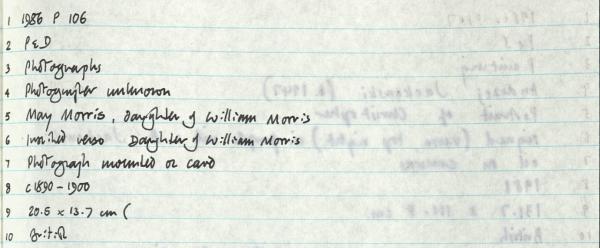 1 1986 P 106
2 P&D
3 Photographs
4 Photographer unknown
5 May Morris, Daughter of William Morris
6 Inscribed verso Daughter of William Morris
7 Photograph mounted on card
8 c1890-1900
9 20.5 x 13.7 cm (
10 British